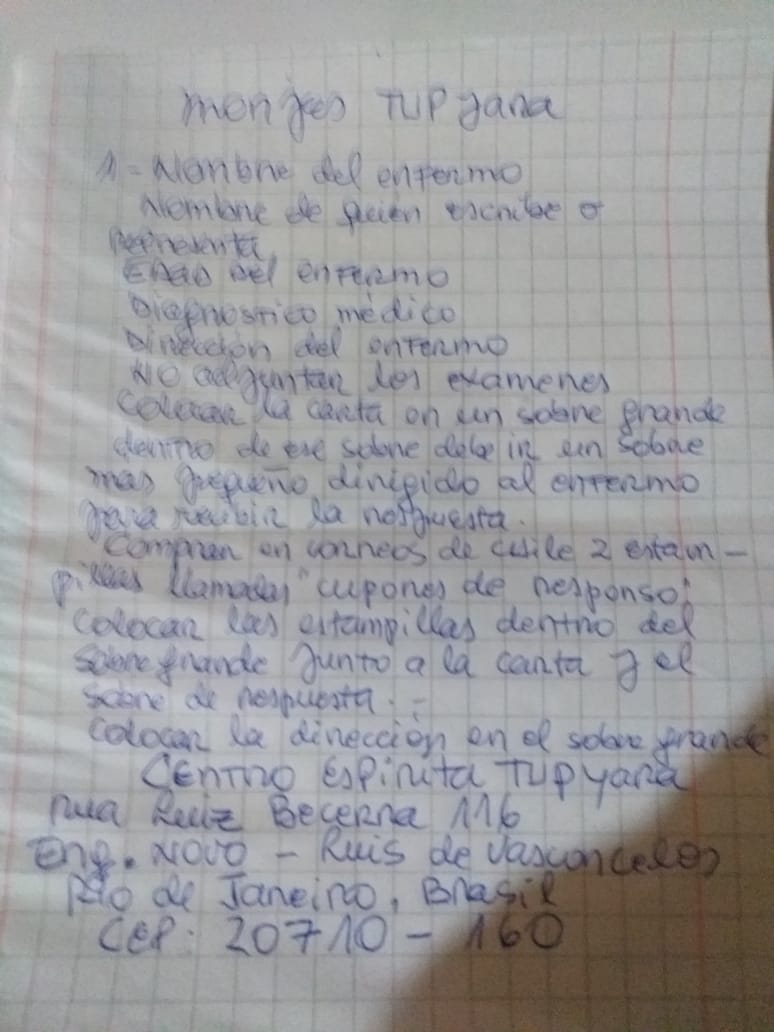 monjes TUPyana
1= Nombre del enfermo
Nombre de quien escribe o
Representa
EDAD Del enfermo
Diagnostico médico
Dirección del enfermo
NO adjuntar los examenes
Colocar la carta en un sobre grande
dentro de ese sobre debe ir un sobre
mas pequeño dirigido al enfermo
para recibir la respuesta.
Comprar en correos de chile 2 estam-
pillas llamadas "cupones de responso"
Colocar las estampillas dentro del
sobre grande junto a la carta y el
sobre de respuesta. =
Colocar la dirección en el sobre grande
Centro Espirita Tupyara
rua Ruiz Becerra 116
Eng. Novo - Ruis de Vasconcelos
Rio de Janeiro, Brasil
CEP: 20710-160